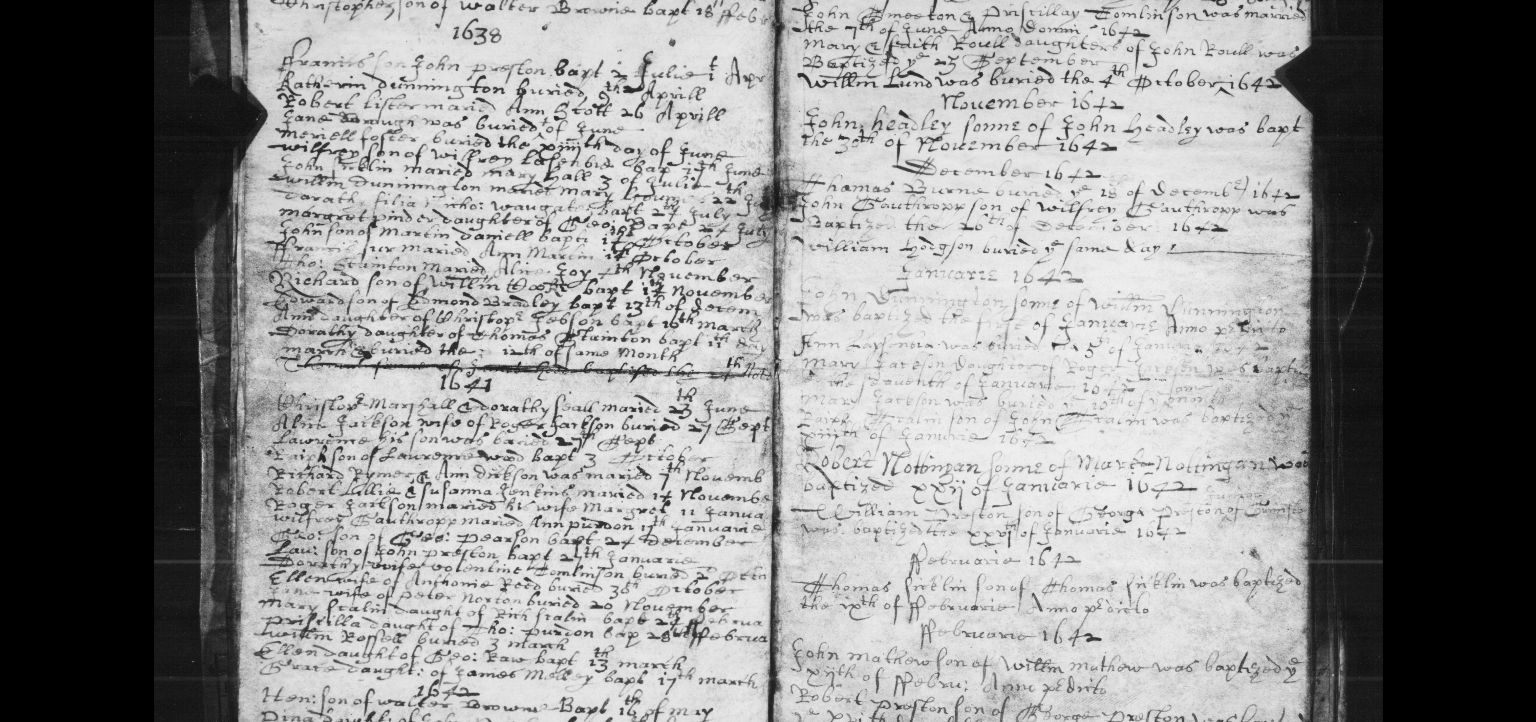 Christopher, son of Walter Browne bapt 18th ffebr
1638
Francis son John preston bapt 2 Julie 1t Apr
Katherin dunnington buried 9th Aprill
Robert Lister maried Ann Stott 26 Aprill
Jane was buried of June
Meriell foster buried the xiiijth day of June
wilfrey son of wilfrey bap 17th June
John maried mary hall 3 of Julie
willm Dunnington maried Mary 22 th
dorathy filia Tho: waugate bapt 27 July
Margret pinder daughter of Geo: Bapt 27 July
John son of Martin daniell bapt 1 th October
ffrancis maried Ann Martin 14 October
Tho: Stainton Maried Alice Joy th November
Richard son of willm bapt 14 November
Edward son of Edmond Bradley bapt 13th of decem
Ann daughter of Christopr Jebson bapt 16th march
Dorathy daughter of Thomas Stainton bapt 11 day
march & buried the: 12th of same Month
baptised the th
1641
Christopr Marshall & dorathy seall maried 23 th June
Alice Jackson wife of Roger Jackson buried 27 Sept
Lawrence his son was buried 27th Sept
Raiph son of Laurence wod bapt 3 October
Richard Rymer & Ann dickson was maried 7th Novemb
Robert Lillie & Susanna Jenkins maried 14 Novembe
Roger Jackson married his wife Margret 11 Janua
wilfrey Gauthropp maried Ann purdon 11th Januarie
Geo: son of Geo: pearson bapt 24 december
Lau: son of John preston bapt 2 th Januarie
Dorathy wife volentine Tomlinson buried 2 Octo
Ellen wife of Anthonie Reed buried 30th October
Jane wife of peter Norton buried 20 November
Mary Stalin daught of Rich Stalin bapt 24th ffebrua
priscilla daught of Tho: purdon bap 28th ffebrua
willm Rossell buried 3 march
Ellen daught of Geo: Raw bapt 13th march
Grace daught: of James Melley bapt 17th march
1642
Hen: son of walter Browne Bapt 16th of may
John Smeeton & priscillay Tomlinson was married
the 7th of June Anno domni 1642
Mary & Edith Roull daughters of John Roull was
Baptized ye 25 September
Willm Lund was buried the 4th October 1642
November 1642
John headley sonne of John headley was bapt
the 30th of November 1642
December 1642
Thomas Burne buried ye 18 of decembr 1642
John Gauthropp son of wilfrey Gauthropp was
Baptized the 20th of december: 1642
William Hodgson buried ye same day
Januarie 1642
John Dunnington sonne of willm Dunnington
was baptized the first of Januarie Anno predicto
Ann was buried 5 of Januarie 1642
Mary Jackson daughter of Roger Jackson was baptiz
the seaventh of Januarie 1642
Mary Jackson was buried ye 10th of ye same month
Raiph Stalin son of John Stalin was baptized ye
xiijth of Januarie 1642
Robert Nottingan sonne of Marke Nottingan was
baptized xxij of Januarie 1642
William Preston son of George Preston of
was baptized the xxvj of Januarie 1642
ffebruarie 1642
Thomas Sicklin son of Thomas Sicklin was baptized
the ixth of ffebruarie Anno predicto
ffebruarie 1642
John mathew son of willm mathew was baptized ye
xijth of ffebru: Anno predicto
Robert preston son of George preston was bapt